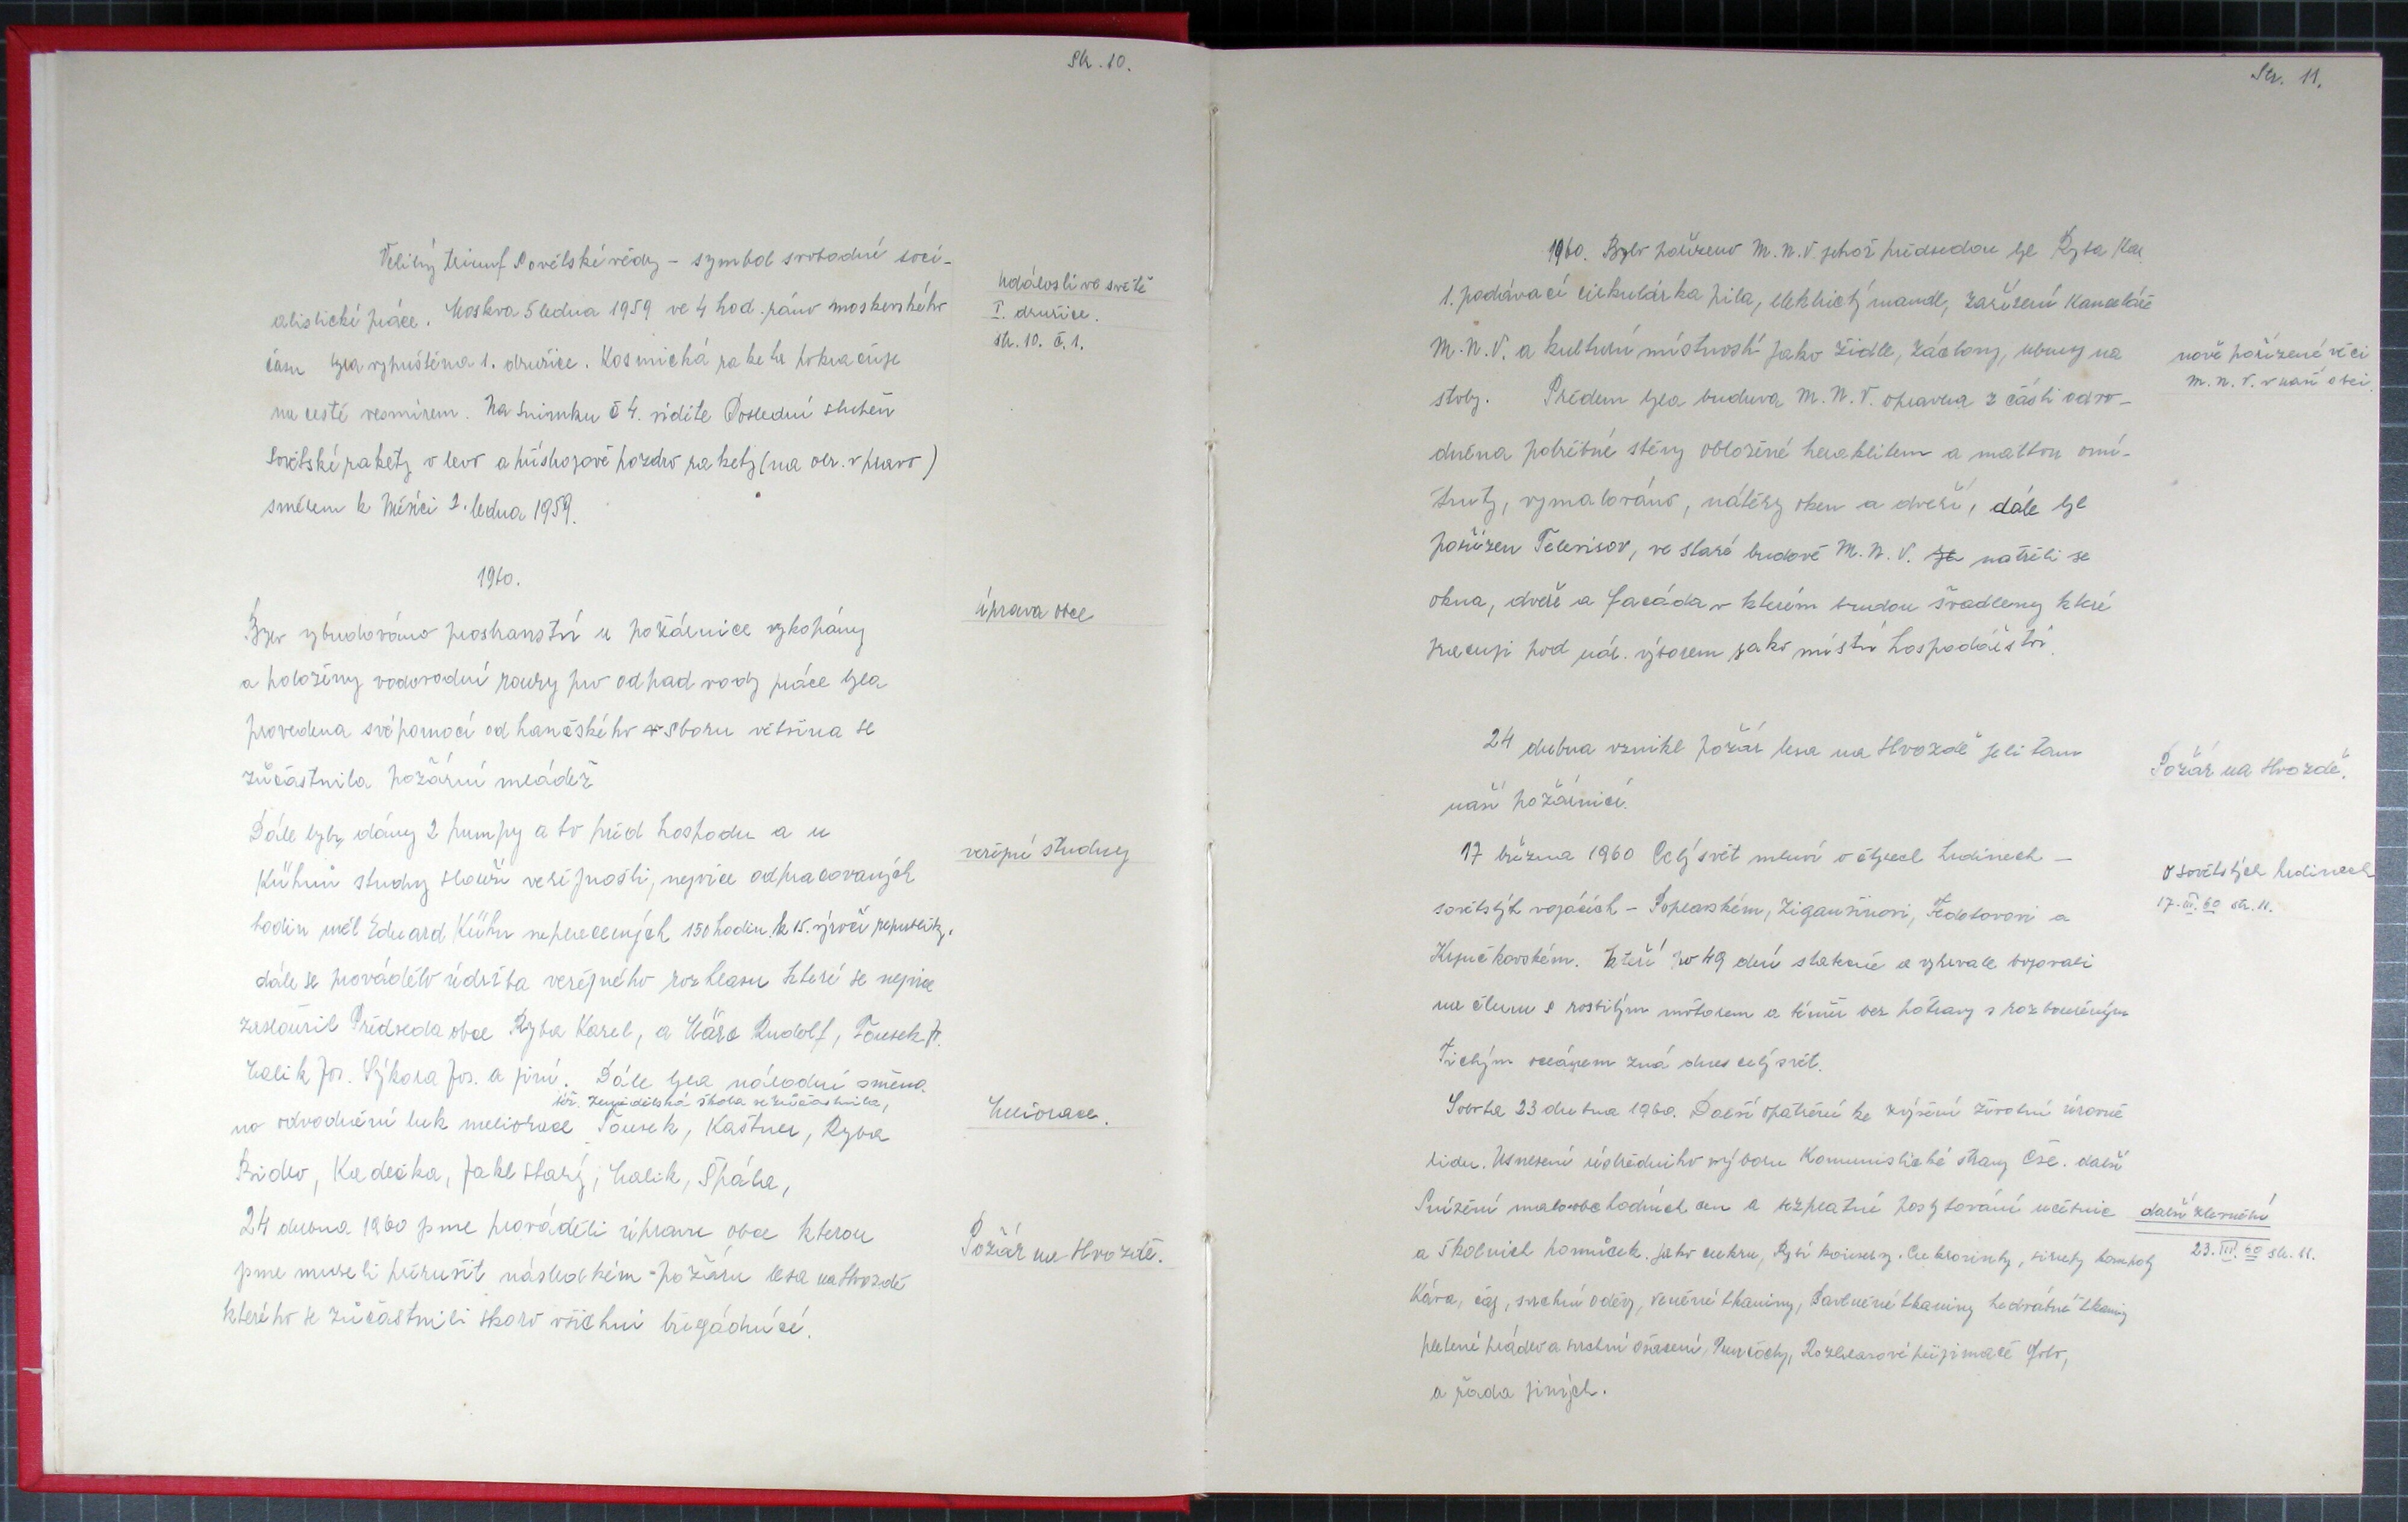 Str. 10.
Veliký triumf Sovětské vědy – symbol svobodné soci-
alistické práce. Moskva 5 ledna 1959 ve 4 hod. ráno moskevského
času byla vypuštěna 1. družice. Kosmická raketa pokračuje
na cestě vesmírem. Na snímku č 4. vidíte Poslední stupeň
Sovětské rakety v levo a přístrojové pouzdro rakety (na obr. v pravo)
směrem k Měsíci 2. ledna 1959.
Události ve světě
I. družice.
str. 10. č. 1.
1960.
Bylo vybudováno prostranství u požárnice vykopány
a položeny vodovodní roury pro odpad vody práce byla
provedena svépomocí od hasičského sboru většina se
zůčástnila požární mládež
úprava obce
Dále byly dány 2 pumpy a to před hospodu a u
Kühnů studny slouží veřejnosti, nejvíce odpracovaných
hodin měl Eduard Kühn neplacených 150 hodin k 15. výročí republiky.
dále se provádělo údržba veřejného rozhlasu které se nejvíce
zasloužil Předseda obce Ryba Karel, a Rudolf, Toušek Jr.
Jos. Sýkora Jos. a jiní. Dále byla národní směna
zemědělská škola se zúčastnila,
na odvodnění luk meliorace Toušek, Kaštner, Ryba
Kadečka, Jakl starý, Špála,
veřejné studny
Meliorace.
24 dubna 1960 jsme prováděli úpravu obce kterou
jsme museli přerušit následkém požáru lesa na Hvozdě
kterého se zůčastnili skoro všichni brigádníci.
Požár na Hvozdě.
Str. 11.
1960. Bylo pořízeno M. N. V. jehož předsedou byl Ryba Kar.
1. podávací cirkulárka pila, elektrický mandl, zařízení kanceláře
M. N. V. a kulturní místnosti jako židle, záclony, ubrusy na
stoly. Předem byla budova M. N. V. opravena z části odvo-
dněna potřebné stěny obložené heraklitem a maltou omí-
tnuty, vymalováno, nátěry oken a dveří, dále byl
pořízen Televisor, ve staré budově M. N. V. natřeli se
okna, dveře a facáda v kterém budou švadleny které
pracují pod nár. výborem jako místní hospodářství.
nově pořízené věci
M. N. V. v naší obci.
24 dubna vznikl požár lesa na Hvozdě jeli tam
naší požárníci.
Požár na Hvozdě.
17 března 1960 Celý svět mluví o čtyřech hrdinech –
sovětských vojácích – Poplavském, Ziganšinovi, Fedotovovi a
Krjučkovském. Kteří po 49 dní statečně a vytrvale bojovali
na člunu s rozbitým mótorem a téměř bez potravy s rozbouřeným
Tichým oceánem zná dnes celý svět.
o sovětských hrdinech
17. III. 60 str. 11.
Sobota 23 dubna 1960. Další opatření ke zvýšení životní úrovně
lidu. Usnesení ústředního výboru Komunistické strany Čsl. další
Snížení maloobchodních cen a bezplatné poskytování učebnic
a školních pomůcek. jako cukru, Rybí konservy. Cukrovinky, sirupy kompoty
Káva, čaj, svrchní oděvy, vlněné tkaniny, bavlněné tkaniny hedvábné tkaniny
pletené prádlo a svrchní ošacení, Punčochy, Rozhlasové přijimače
a řada jiných.
další zlevnění
23. III. 60 str. 11.